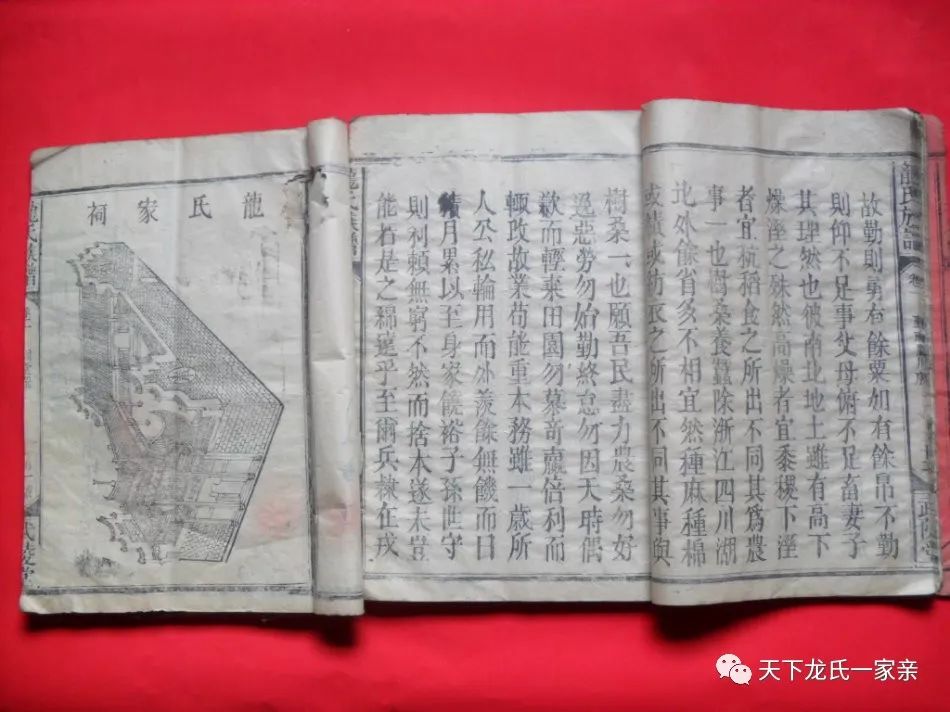 龍氏族譜
故勤則男有餘粟如有餘帛不勤
則仰不足事父母俯不足畜妻子
其理然也彼南北地土雖有高下
燥溼之殊然高燥者宜黍稷下溼
者宜秔稻食之所出不同其爲農
事一也樹桑養蠶除浙江四川湖
北外餘省多不相宜然種麻種棉
或績或紡衣之所出不同其事與
樹桑一也願吾民盡力農桑勿好
逸惡勞勿始勤終怠勿因天時偶
歉而輕棄田園勿慕奇贏倍利而
輒改故業苟能重本務雖一歲所
入公私輸用而外羨餘無饑而日
積月累以至身家饒裕子孫世守
則利賴無窮不然而捨本逐末豈
能若是之綿遠乎至爾兵隸在戎
龍氏家祠
天下龙氏一家亲